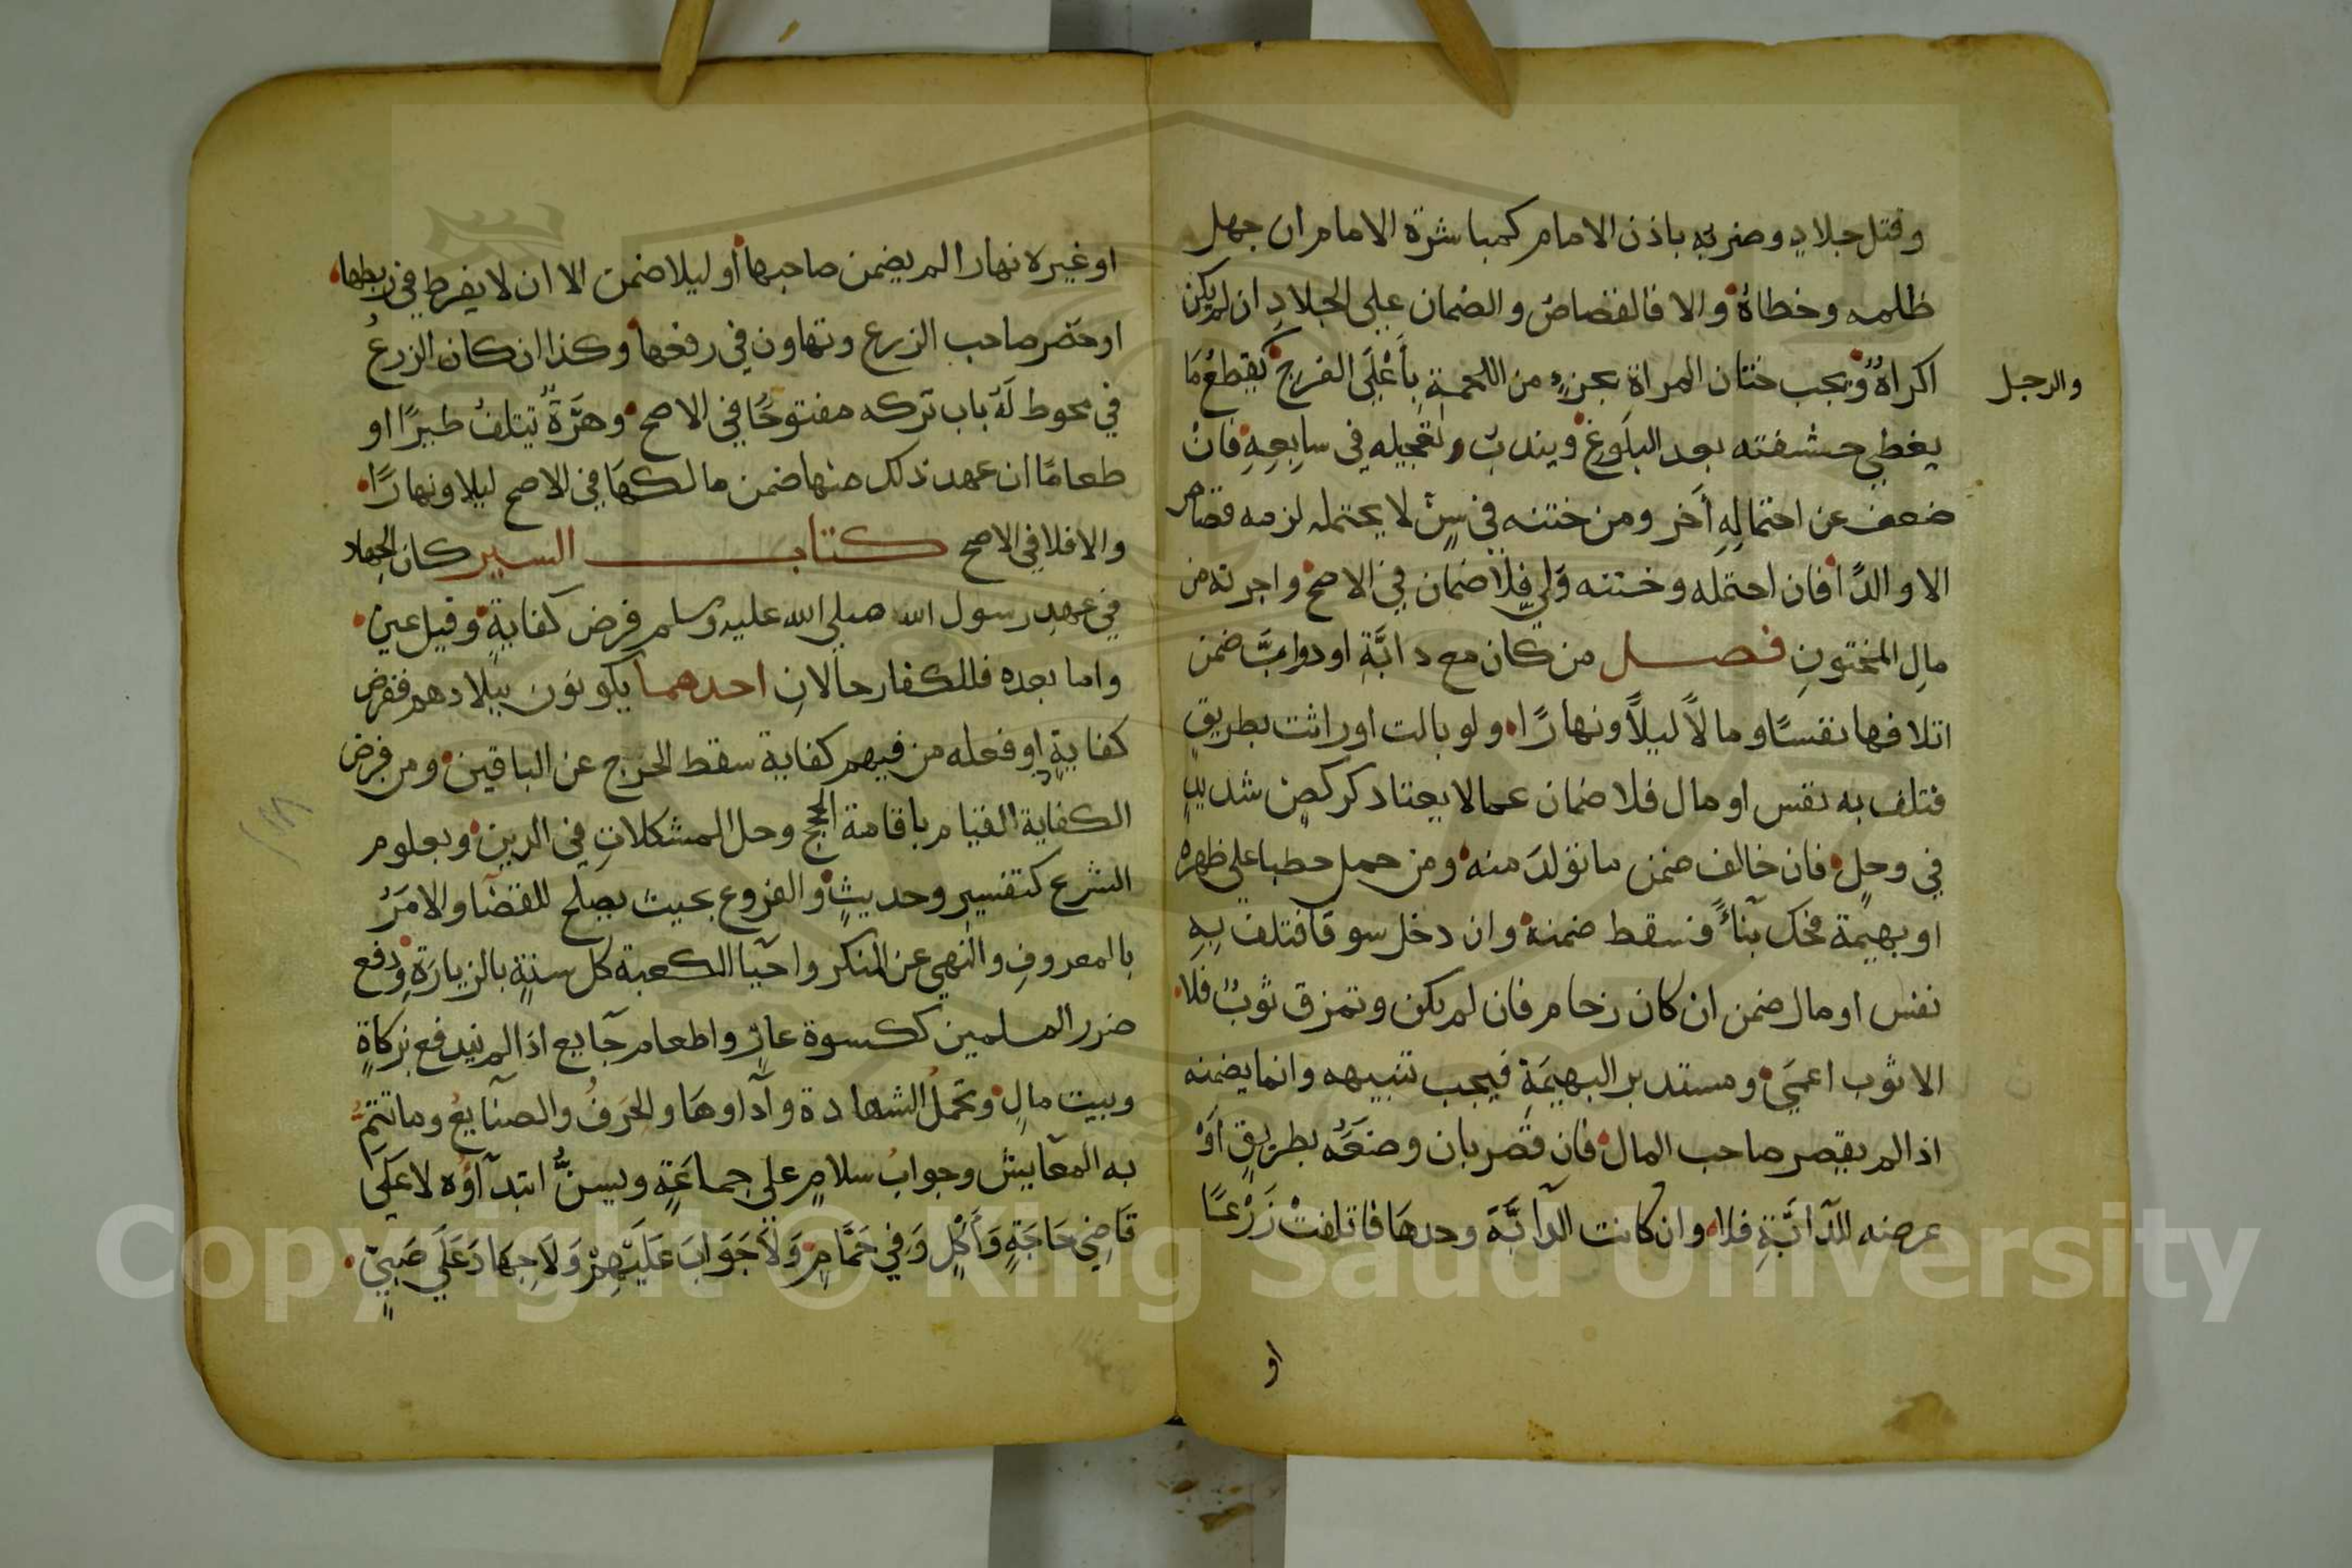 وقتل جلاد وضربه باذن الامام كمباشرة الامام ان جهل
ظلمه وخطاه والا فالقصاص والضمان على الجلاد ان لم يكن
اكراهٌ ويجب ختان المراة بجزءٍ من اللحمة بأعْلَى الفرج بقطع مَا
والرجل
يغطي حشفته بعد البلوغ ويندب تعجيله في سابعه فان
ضعف عن احتماله أخر ومن ختنه في سنٍ لا يحتمله لزمه قصاص
الا والدًا فان احتمله وختنه ولي فلا ضمان في الاصح واجرته من
مال المختون فصل من كان مع دابَّةٍ او دوابَّ ضمن
اتلافها نفسًا ومالًا ليلًا ونهارًا ولو بالت او راثت بطريق
فتلف به نفس او مال فلا ضمان عما لا يعتاد كركضٍ شديدٍ
في وحلٍ فان خالف ضمن ما تولد منه ومن حمل حطبا على ظهره
او بهيمة فحك بناءً فسقط ضمنه وان دخل سوقا فتلف بِهِ
نفس او مال ضمن ان كان زحام فان لم يكن وتمزق ثوبٌ فلا
الا ثوب اعمى ومستدبر البهيمَةِ فيجب تنبيهه وانما يضمنه
اذا لم يقصر صاحب المال فان قصر بان وضعَهُ بطريقٍ اَوْ
عرضه للدَّابَّةِ فلا وان كانت الدابَّةَ وحدهَا فاتلفتْ زَرْعًا
او
او غيره نهارا لم يضمن صاحبها أو ليلا ضمن الا ان لا يفرط في ربطها
او حضر صاحب الزرع وتهاون في دفعها وكذا ان كان الزرعُ
في محوط لَهُ باب تركه مفتوحًا في الاصح وهرَّةٌ تتلفُ طيرًا او
طعامًا ان عهد ذلك منها ضمن مالكهَا في الاصح ليلا ونهارًا
والا فلا في الاصح كتاب السير كان الجهاد
في عهد رسول الله صلى الله عليه وسلم فرض كفايةٍ وقيل عين
واما بعده فللكفار حالانِ احدهما يكونون ببلادهم ففرض
كفايةٍ او فعله من فيهم كفاية سقط الحرج عن الباقين ومن فرض
الكفاية القيام باقامة الحجج وحل المشكلاتِ في الدين وبعلوم
الشرع كتفسيرٍ وحديثٍ والفروع بحيث يصلح للقضا والامَرُ
بالمعروفِ والنهي عن المنكر واحيا الكعبة كل سنةٍ بالزيارَةِ ودفع
ضرر المسلمين ككسوة عارٍ واطعام جآيع اذا لم يندفع بزكاةٍ
وبيت مالٍ وتحملُ الشهادة وآداوهَا والحرَفُ والصنآيعُ وما تتمُّ
به المعآيش وجوابُ سلامٍ على جماعَةٍ ويسنُّ ابتدآؤُه لا عَلَى
قَاضِي حَاجَةٍ وَأَكْلٍ وَفِي حَمَّامٍ وَلَا جَوَابَ عَلَيْهِمْ وَلَا جِهَادَ عَلَى صَبِيّ
Copyright © King Saud University